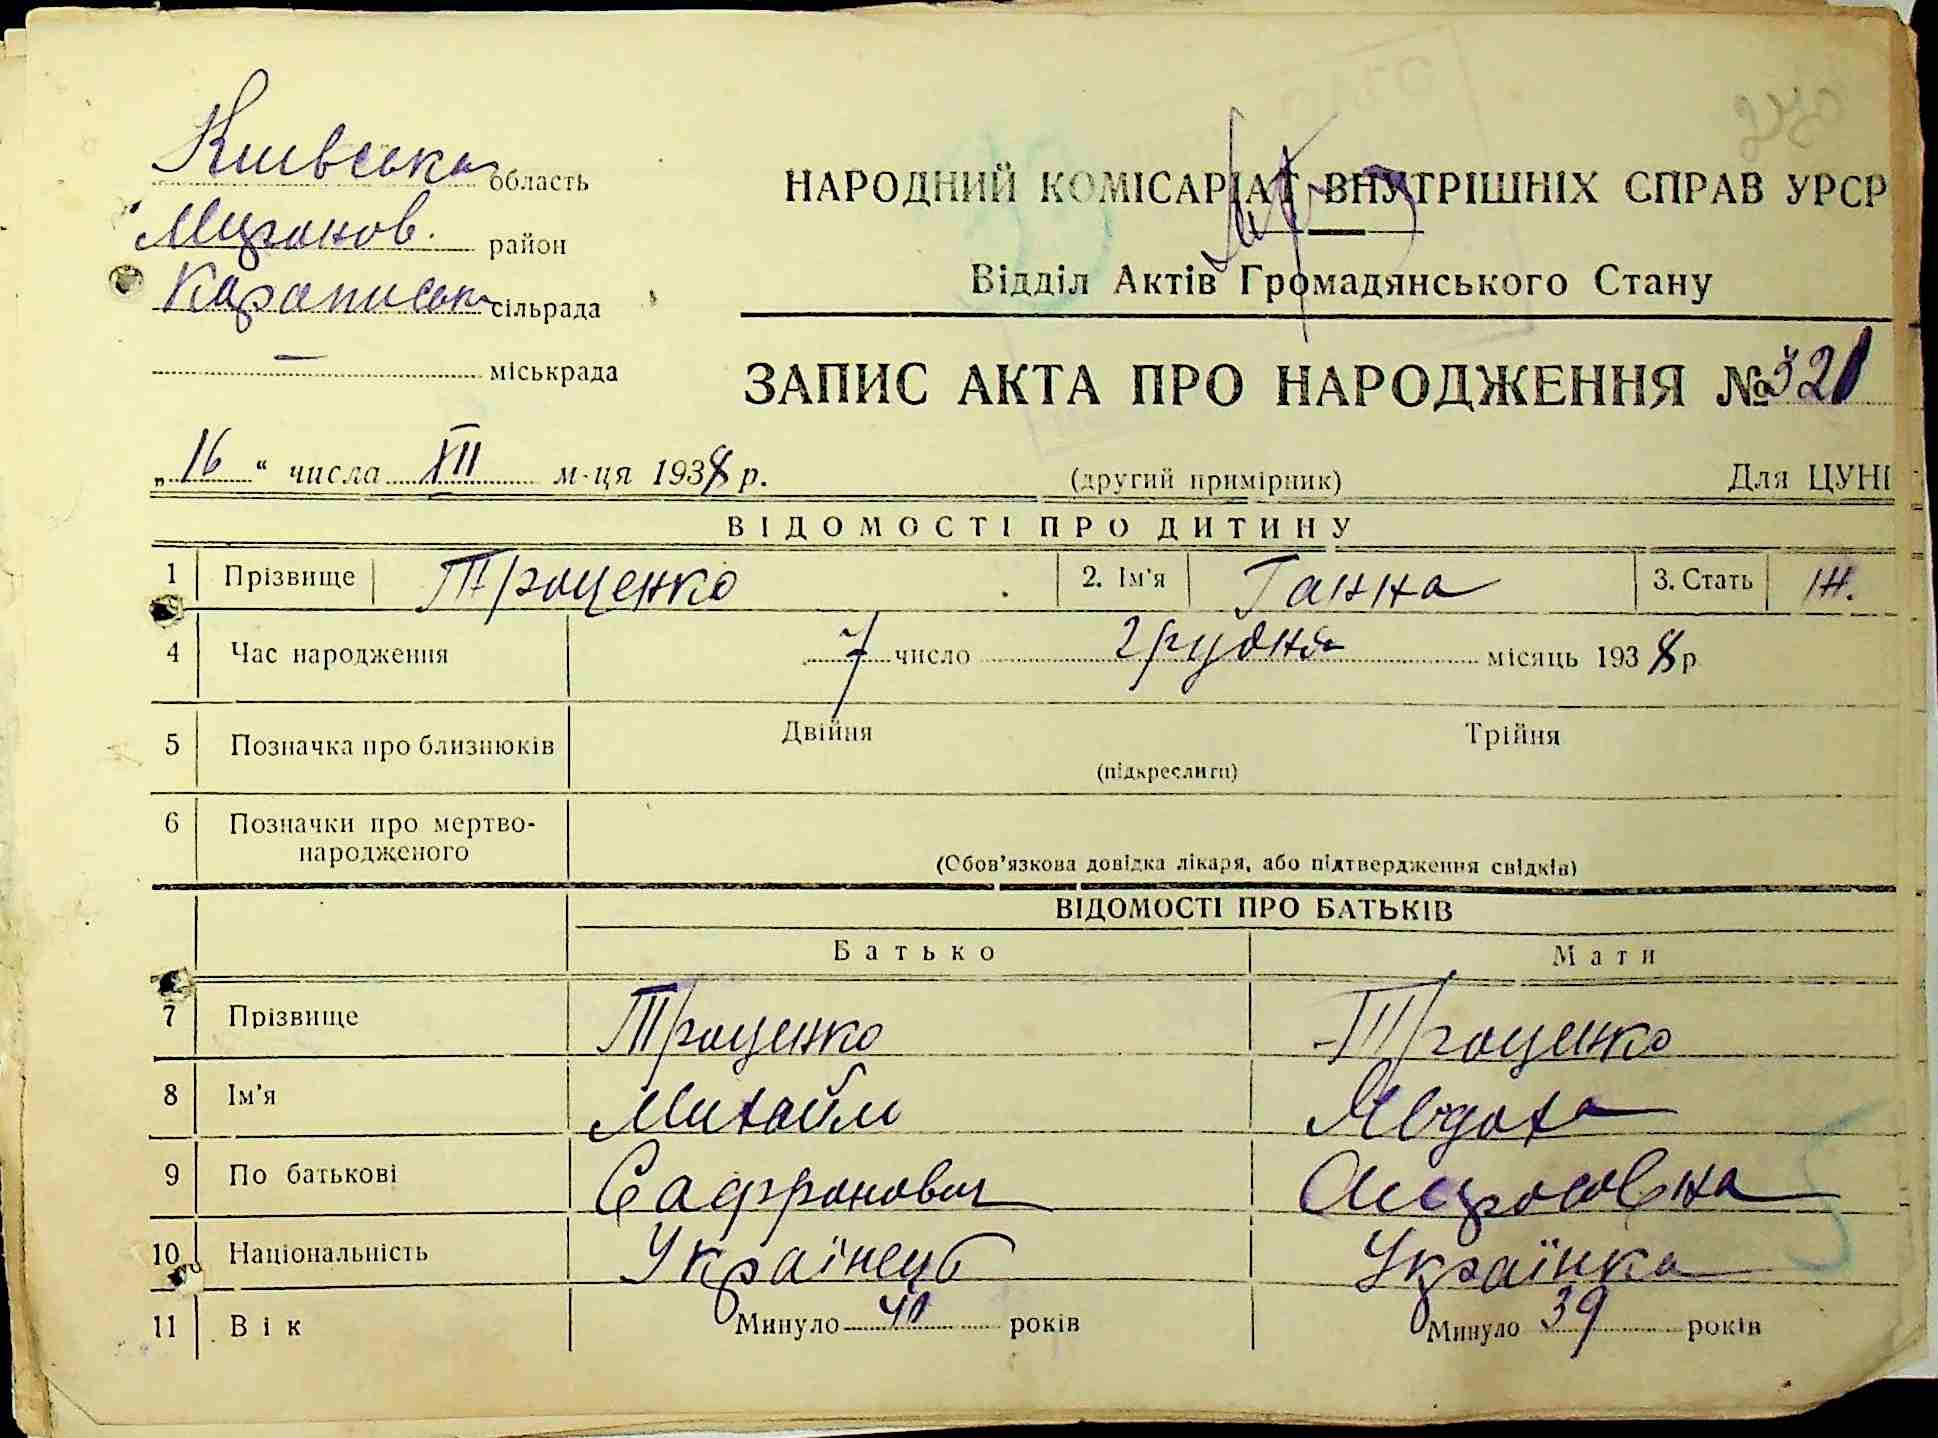 Київська область
Миронов. район
Карапиські сільрада
— міськрада
НАРОДНИЙ КОМІСАРІАТ ВНУТРІШНІХ СПРАВ УРСР
Відділ Актів Громадянського Стану
ЗАПИС АКТА ПРО НАРОДЖЕННЯ № 321
„16“ числа XII м-ця 1938 р.
(другий примірник) Для ЦУНГ
ВІДОМОСТІ ПРО ДИТИНУ
1 Прізвище Троценко 2. Ім'я Ганна 3. Стать Ж.
4 Час народження 7 число грудня місяць 1938 р
5 Позначка про близнюків Двійня Трійня
(підкреслити)
6 Позначки про мертво-
народженого
(Обов'язкова довідка лікаря, або підтвердження свідків)
ВІДОМОСТІ ПРО БАТЬКІВ
Батько Мати
7 Прізвище Троценко Троценко
8 Ім'я Михайло Явдоха
9 По батькові Сафронович
10 Національність Українець Українка
11 Вік Минуло 40 років Минуло 39 років